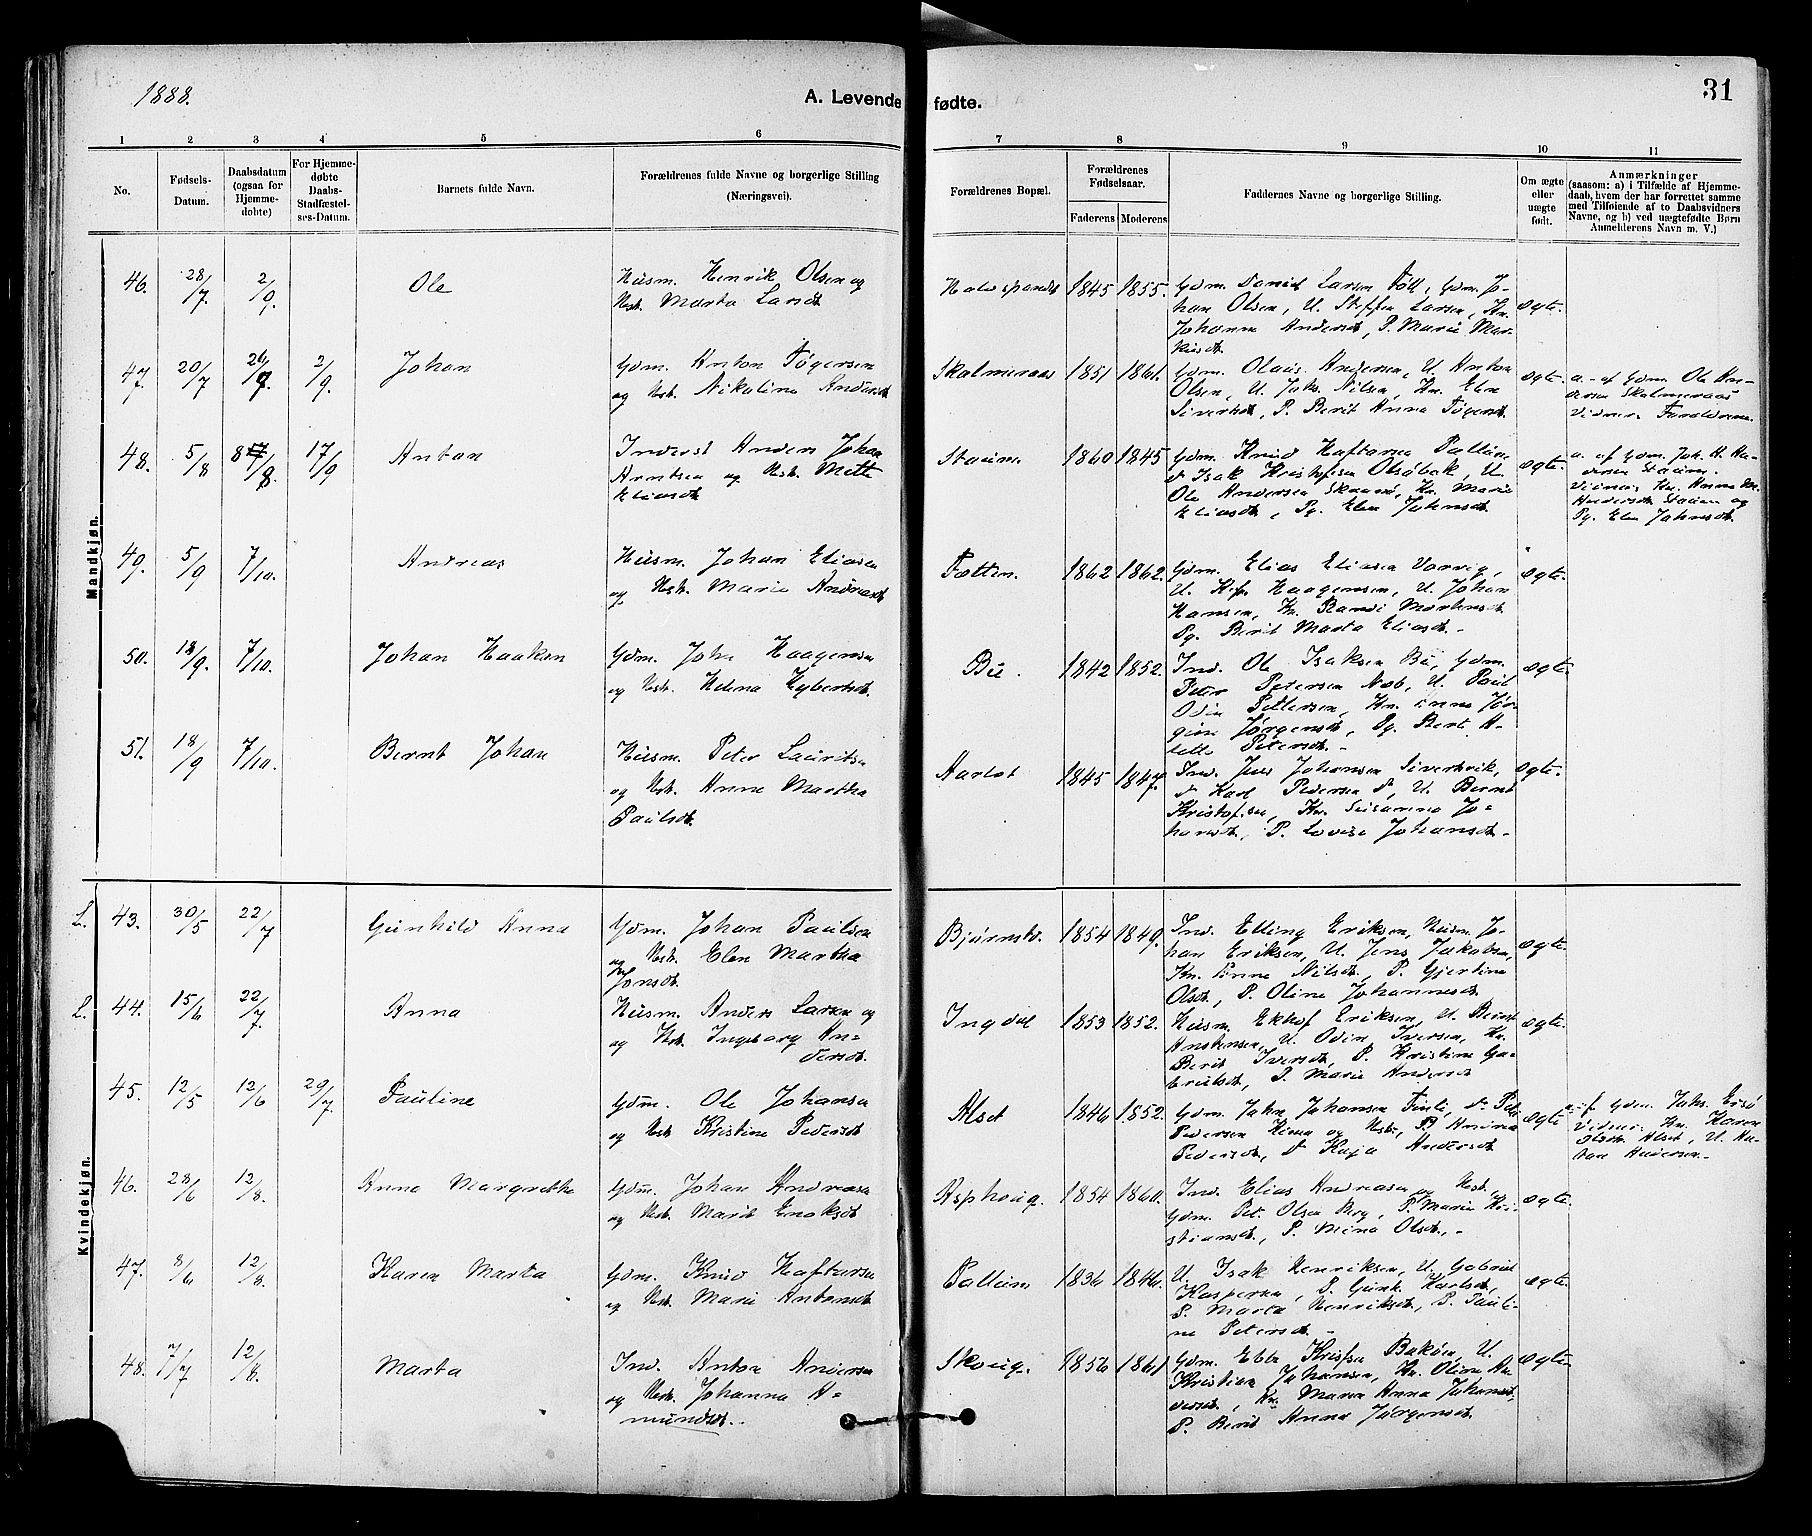 1888.
A. Levende fødte.
31
1 2 3 4 5 6 7 8 9 10 11
No.
Fødsels-
Datum.
Daabsdatum
(ogsaa for
Hjemme-
døbte)
For Hjemme-
døbte
Daabs-
Stadfæstel-
ses-Datum.
Barnets fulde Navn.
Forældrenes fulde Navne og borgerlige Stilling
(Næringsvei).
Forældrenes Bopæl.
Forældrenes
Fødselsaar.
Faderens Moderens
Faddernes Navne og borgerlige Stilling.
Om ægte
eller
uægte
født.
Anmærkninger
(saasom: a) i Tilfælde af Hjemme-
daab, hvem der har forrettet samme
med Tilføiende af to Daabsvidners
Navne, og b) ved uægtefødte Børn
Anmelderens Navn m. V.)
Mandkjøn.
46. 28/7 2/9. Ole
Husm. Henrik Olsen og
Hst. Marta Larsdt.
1845 1855.
Gdm. Daniel Larsen, Gdm. Jo-
han Olsen, U. Steffen Larsen, Kn.
Johanna Andersdt, P. Marie Mar-
kusdt.
ægte.
47. 20/7 2/9. Johan
Gdm. Anton Tøgersen
og Hst. Nikolina Andersdt
Skalmeraas 1851 1861.
Gdm. Olaus Andersen, U. Anton
Olsen, U. Johs. Nilsen, Kn. Elen
Sivertsdt, P. Berit Anna Tøgersdt.
ægte.
a. af Gdm. Ole An-
dersen Skalmeraas
Vidner: Forældrene
48. 5/8 17/9 Anton
Inderst Anders Johan
Arntsen og Hst. Mette
Eliasdt.
1860 1845
Gdm. Knud Haftorsen
Isak Kristofsen, U.
Ole Andersen, Kn. Marie
Eliasdt, Pg. Elen Johnsdt.
ægte.
a. af Gdm. Joh.
Vidner: Kn. Anna
Andersdt og
Pg. Elen Johnsdt.
49. 5/9 7/10. Andreas
Husm. Johan Eliasen
og Hst. Marie Andreasdt
1862 1862.
Gdm. Elias Eliasen Varvig,
U. Haagensen, U. Johan
Hansen, Kn. Randi Mortensdt.
Pg. Berit Marta Eliasdt.-
ægte-
50. 18/9. 7/10. Johan Haakon
Gdm. Johs Haagensen
og Hst. Helena
Bü. 1842 1852.
Ind. Ole Isaksen Bü, Gdm.
Peter Petersen, U. Paul
Odin Pettersen, Kn. Jør-
gine Jørgensdt, Pg. Berit A-
lette Petersdt.-
ægte.
51. 18/9 7/10. Bernt Johan
Husm. Peter Lauritsen
og Hst. Anna Martha
Paulsdt.
1845 1847.
Ind. Jens Johansen Sivertsvik,
Karl Pedersen, U. Bernt
Kristofsen, Kn. Susanna Jo-
hansdt, P. Lovise Johansdt-
Ægte.
Kvindekjøn.
L. 43. 30/5 22/7 Gunhild Anna
Gdm. Johan Paulsen
og Hst. Elen Martha
Jonsdt.
1854 1849.
Ind. Elling Eriksen, Husm. Jo-
han Eriksen, U. Jens Jakobsen,
Kn. Nilsdt, P. Gjertine
Olsdt, P. Oline Johannesdt.
ægte.
L. 44. 15/6 22/7. Anna
Husm. Anders Larsen og
og Hst. Ingeborg An-
dersdt.
Ingdal 1853 1852.
Husm. Eriksen, U. Bernt
U. Odin Iversen, Kn.
Berit Iversdt, P. Kristine Ga-
brielsdt, P. Marie Andersdt
ægte.
45. 12/5 12/6 29/7. Pauline
Gdm. Ole Johansen
og Hst. Kristine Pedersdt
Alset 1846 1852.
Gdm. John Johansen
Pedersen og Hst., P. Andrea
Pedersdt, Kaja Andersdt
ægte
af Gdm. Johs.
Vidner: Kn. Karen
Olsdt. Alset, U. An-
ton Andersen.-
46. 28/6 12/8. Anna Margrethe
Gdm. Johan Andreasen
og Hst. Marit Enoksdt
Asphaug. 1854 1860.
Ind. Elias Andreasen og Hst.,
Gdm. Pet. Olsen Berg, P. Marie Kri-
stiansdt, P. Mina Olsdt,-
ægte.
47. 8/6 12/8. Karen Marta
Gdm. Knud Haftorsen
og Hst. Marie Antonsdt
1836 1846.
U. Isak Henriksen, U. Gabriel
Kaspersen, P. Karlsdt,
P. Marta Henriksdt, P. Pauli-
ne Petersdt-
ægte.
48. 7/7 12/8. Marta
Ind. Anton Andersen
og Hst. Johanna A-
mundsdt.-
1856 1861
Gdm. Ebbe, U.
Kristian Johansen, Kn. Oline An-
dersdt, Kn. Maren Anna Johansdt,
P. Berit Anna Jørgensdt.
ægte.